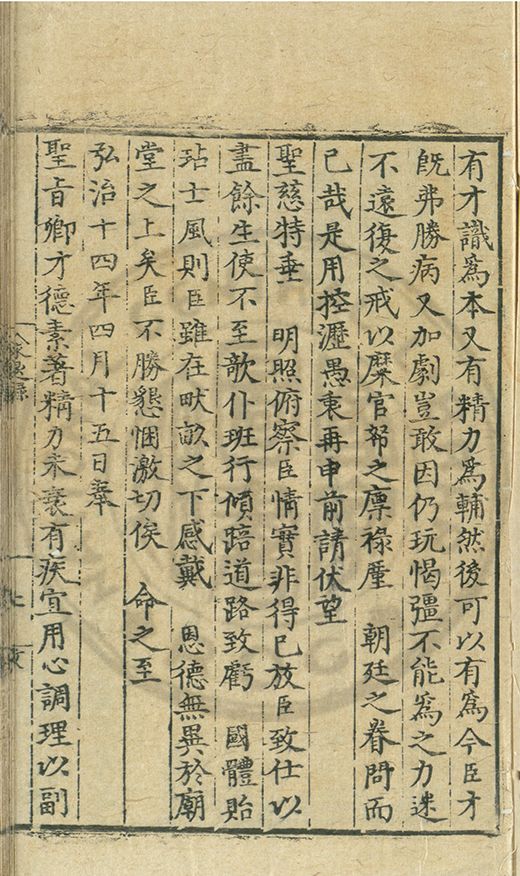 有才識爲本又有精力爲輔然後可以有爲今臣才
旣弗勝病又加劇豈敢因仍玩愒彊不能爲之力迷
不遠復之戒以糜官帑之廩祿廑 朝廷之眷問而
已哉是用控瀝愚衷再申前請伏望
聖慈特垂 明照俯察臣情實非得已放臣致仕以
盡餘生使不至欹仆班行傾踣道路致虧 國體貽
玷士風則臣雖在畎畝之下感戴 恩德無異於廟
堂之上矣臣不勝懇悃激切俟 命之至
弘治十四年四月十五日奉
聖旨卿才德素著精力未衰有疾宜用心調理以副